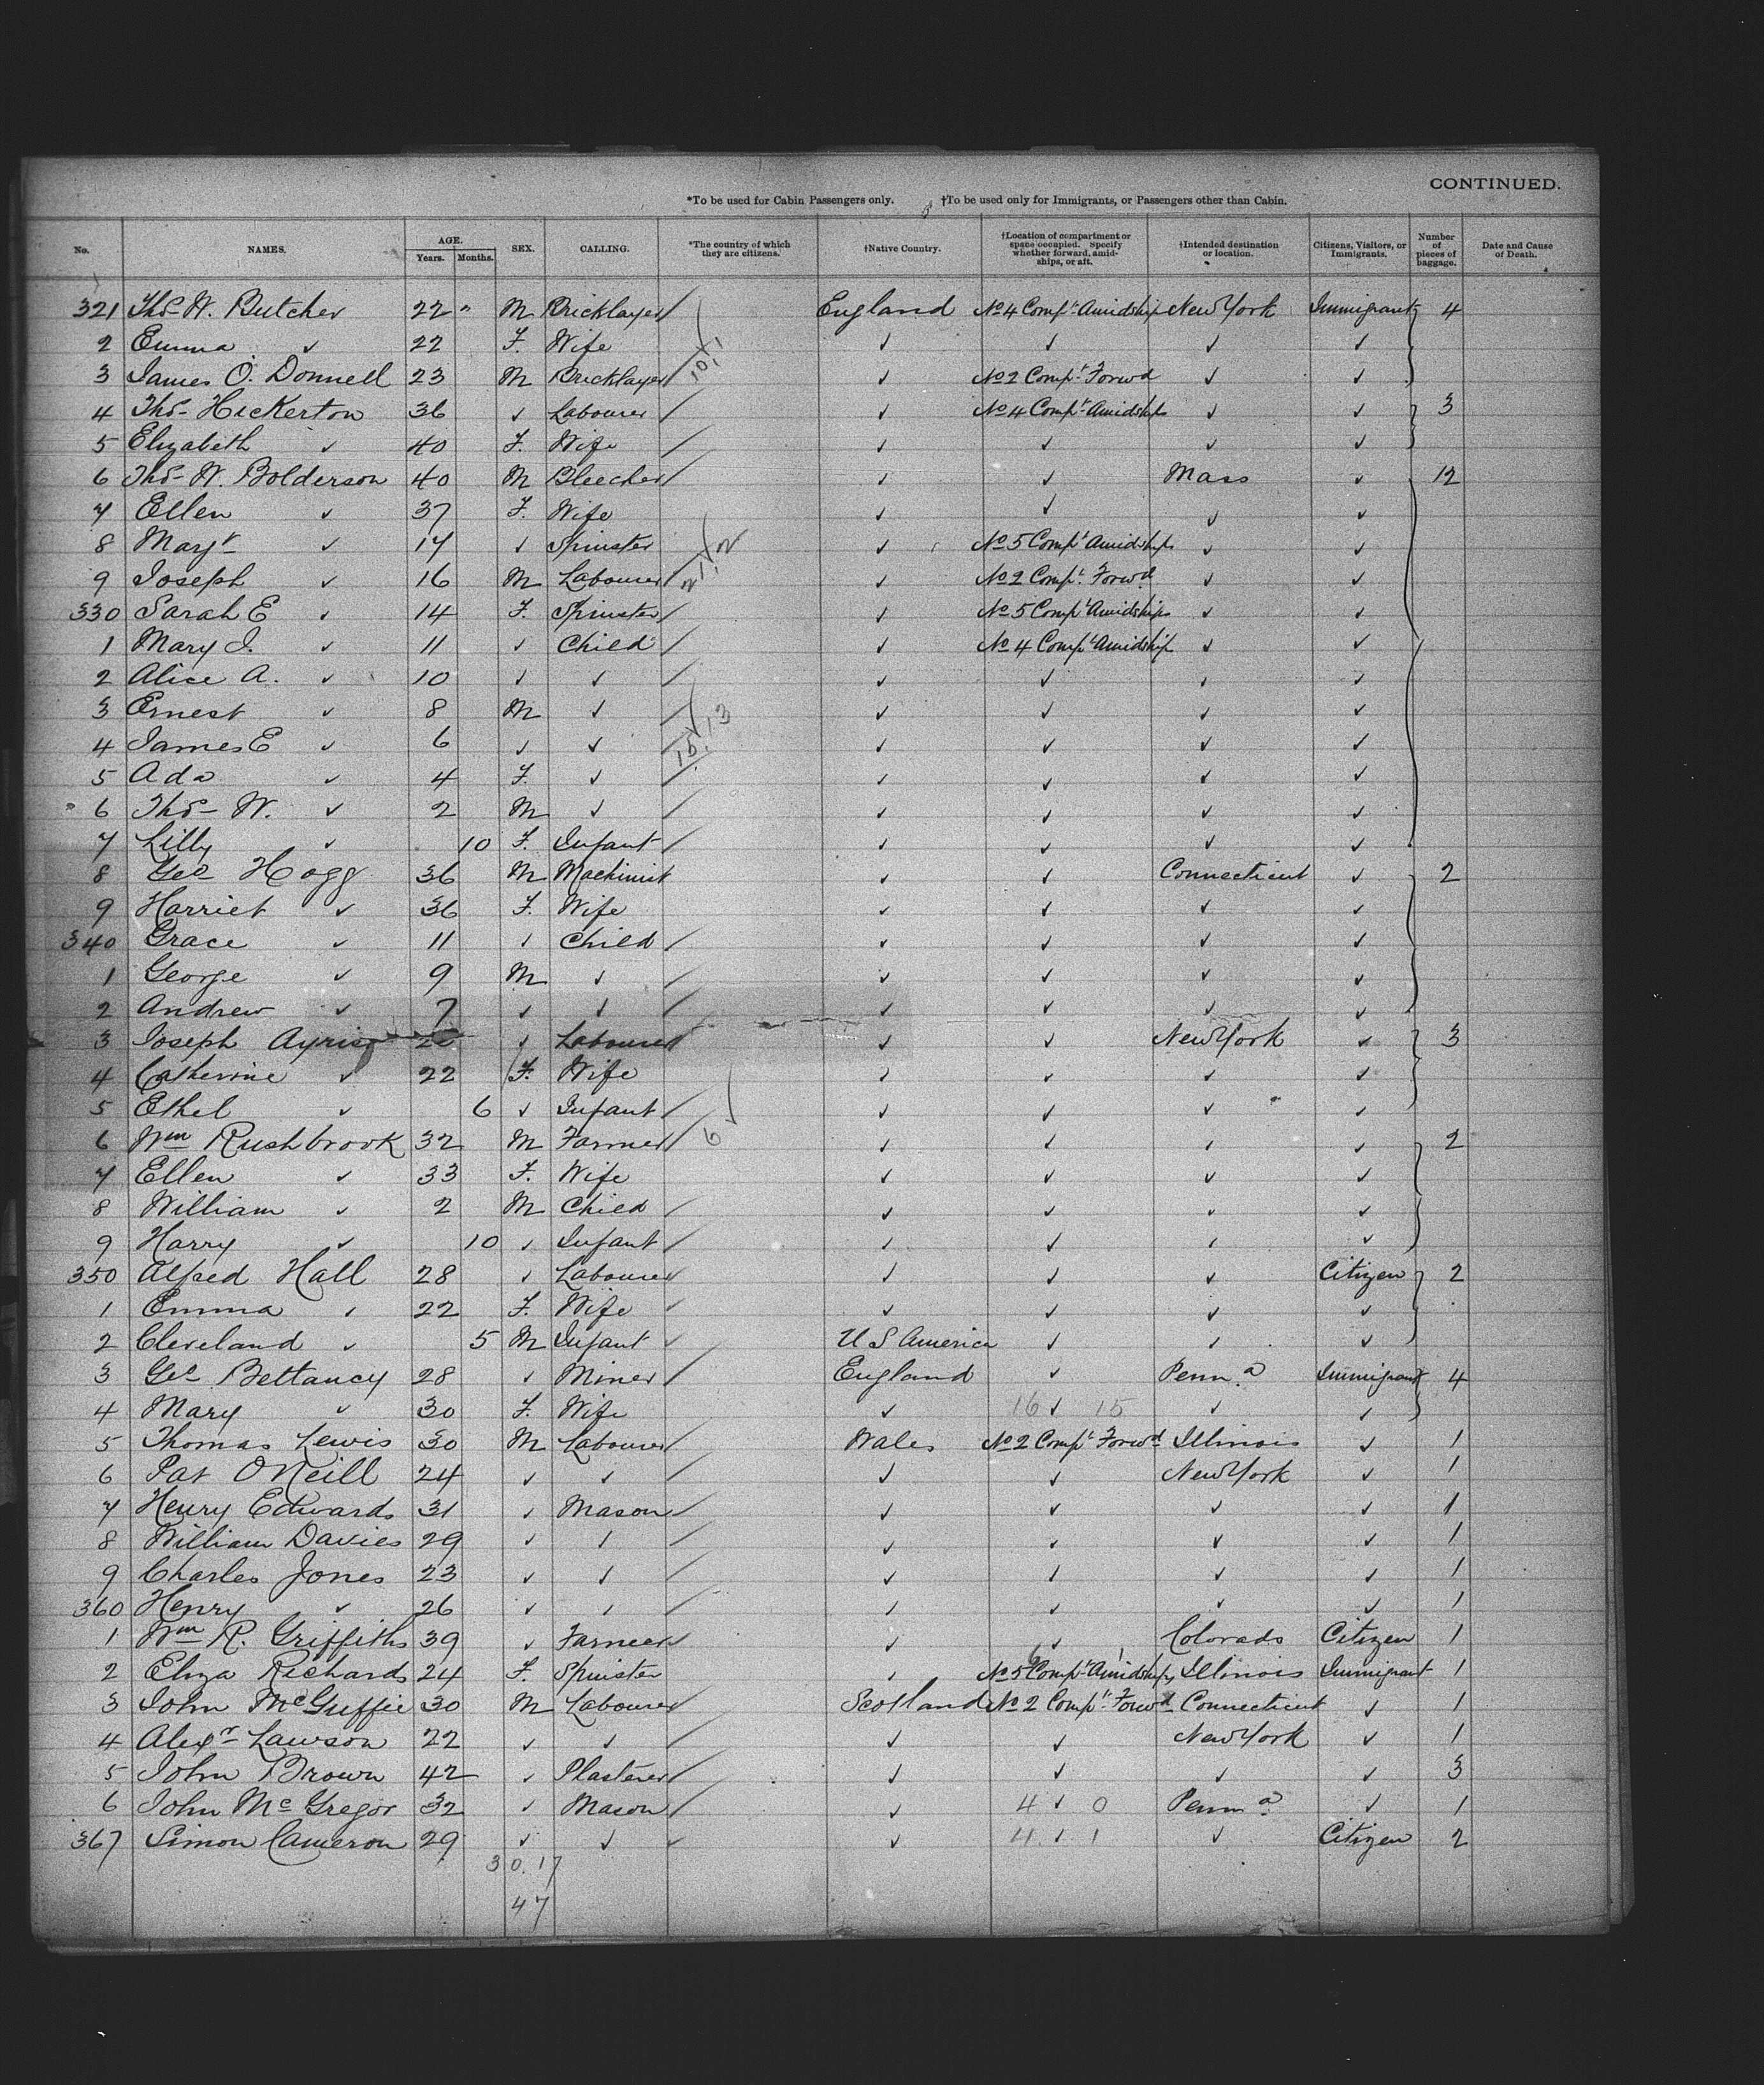 CONTINUED.
*To be used for Cabin Passengers only. †To be used only for Immigrants, or Passengers other than Cabin.
No. NAMES. AGE. Years. Months. SEX. CALLING. *The country of which they are citizens. †Native Country. †Location of compartment or space occupied. Specify whether forward, amidships, or aft. †Intended destination or location. Citizens, Visitors, or Immigrants. Number of pieces of baggage. Date and Cause of Death.
321 Thos W. Butcher 22 " M Bricklayer / England No 4 Compt Amidship New York Immigrant 4
2 Emma ✓ 22 F. Wife ✓ ✓ ✓ ✓
3 James O. Donnell 23 M Bricklayer / ✓ No 2 Compt Forwd ✓ ✓
4 Thos Hickerton 36 ✓ Labourer / ✓ No 4 Compt Amidships ✓ ✓ 3
5 Elizabeth ✓ 40 F. Wife / ✓ ✓ ✓ ✓
6 Thos W. Bolderson 40 M Bleecher / ✓ ✓ Mass ✓ 12
7 Ellen ✓ 37 F. Wife ✓ ✓ ✓ ✓
8 Margt ✓ 17 ✓ Spinster ✓ No 5 Compt Amidships ✓ ✓
9 Joseph ✓ 16 M Labourer / ✓ No 2 Compt Forwd ✓ ✓
330 Sarah E ✓ 14 F. Spinster / ✓ No 5 Compt Amidships ✓ ✓
1 Mary J. ✓ 11 ✓ Child / ✓ No 4 Compt Amidship ✓ ✓
2 Alice A. ✓ 10 ✓ ✓ / ✓ ✓ ✓ ✓
3 Ernest ✓ 8 M ✓ / ✓ ✓ ✓ ✓
4 James E ✓ 6 ✓ ✓ / ✓ ✓ ✓ ✓
5 Ada ✓ 4 F. ✓ / ✓ ✓ ✓ ✓
6 Thos W. ✓ 2 M ✓ / ✓ ✓ ✓ ✓
7 Lilly ✓ 10 F. Infant / ✓ ✓ ✓ ✓
8 Geo Hogg 36 M Machinist ✓ ✓ Connecticut ✓ 2
9 Harriet ✓ 36 F. Wife ✓ ✓ ✓ ✓
340 Grace ✓ 11 ✓ Child / ✓ ✓ ✓ ✓
1 George ✓ 9 M ✓ / ✓ ✓ ✓ ✓
2 Andrew ✓ 7 ✓ ✓ / ✓ ✓ ✓ ✓
3 Joseph ✓ Labourer ✓ ✓ New York ✓ 3
4 Catherine ✓ 22 F. Wife ✓ ✓ ✓ ✓
5 Ethel ✓ 6 ✓ Infant / ✓ ✓ ✓ ✓
6 Wm Rushbrook 32 M Farmer / 6 ✓ ✓ ✓ ✓ 2
7 Ellen ✓ 33 F. Wife ✓ ✓ ✓ ✓
8 William ✓ 2 M Child / ✓ ✓ ✓ ✓
9 Harry ✓ 10 ✓ Infant / ✓ ✓ ✓ ✓
350 Alfred Hall 28 ✓ Labourer ✓ ✓ ✓ Citizen 2
1 Emma ✓ 22 F. Wife ✓ ✓ ✓ ✓ ✓
2 Cleveland ✓ 5 M Infant ✓ U S America ✓ ✓ ✓
3 Geo Bettancy 28 ✓ Miner / England ✓ Penna Immigrant 4
4 Mary ✓ 30 F. Wife ✓ 16 ✓ 15 ✓ ✓
5 Thomas Lewis 30 M Labourer / Wales No 2 Compt Forwd Illinois ✓ 1
6 Pat ONeill 24 ✓ ✓ / ✓ ✓ New York ✓ 1
7 Henry Edwards 31 ✓ Mason / ✓ ✓ ✓ ✓ 1
8 William Davies 29 ✓ ✓ / ✓ ✓ ✓ ✓ 1
9 Charles Jones 23 ✓ ✓ / ✓ ✓ ✓ ✓ 1
360 Henry ✓ 26 ✓ ✓ / ✓ ✓ ✓ ✓ 1
1 Wm R. Griffiths 39 ✓ Farmer ✓ ✓ ✓ Colorado Citizen 1
2 Eliza Richards 24 F. Spinster ✓ No 5 Compt Amidships Illinois Immigrant 1
3 John McGuffie 30 M Labourer / Scotland No 2 Compt Forwd Connecticut ✓ 1
4 Alexr Lawson 22 ✓ ✓ / ✓ ✓ New York ✓ 1
5 John Brown 42 ✓ Plasterer / ✓ ✓ ✓ ✓ 3
6 John McGregor 32 ✓ Mason / ✓ 4 ✓ 0 Penna ✓ 1
367 Simon Cameron 29 ✓ ✓ ✓ ✓ 4 ✓ 1 ✓ Citizen 2
30.17
47